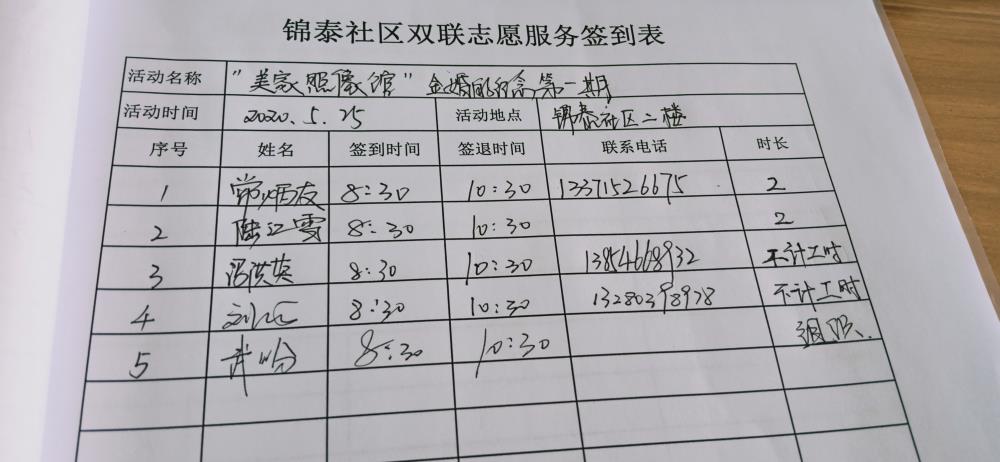 锦泰社区双联志愿服务签到表
活动名称 "美家照像馆"金婚纪念第一期
活动时间 2020.5.25 活动地点 锦泰社区二楼
序号 姓名 签到时间 签退时间 联系电话 时长
1 常炳友 8:30 10:30 13371526675 2
2 陆江雪 8:30 10:30 2
3 冯洪英 8:30 10:30 13854668932 不计工时
4 8:30 10:30 13280398978 不计工时
5 8:30 10:30